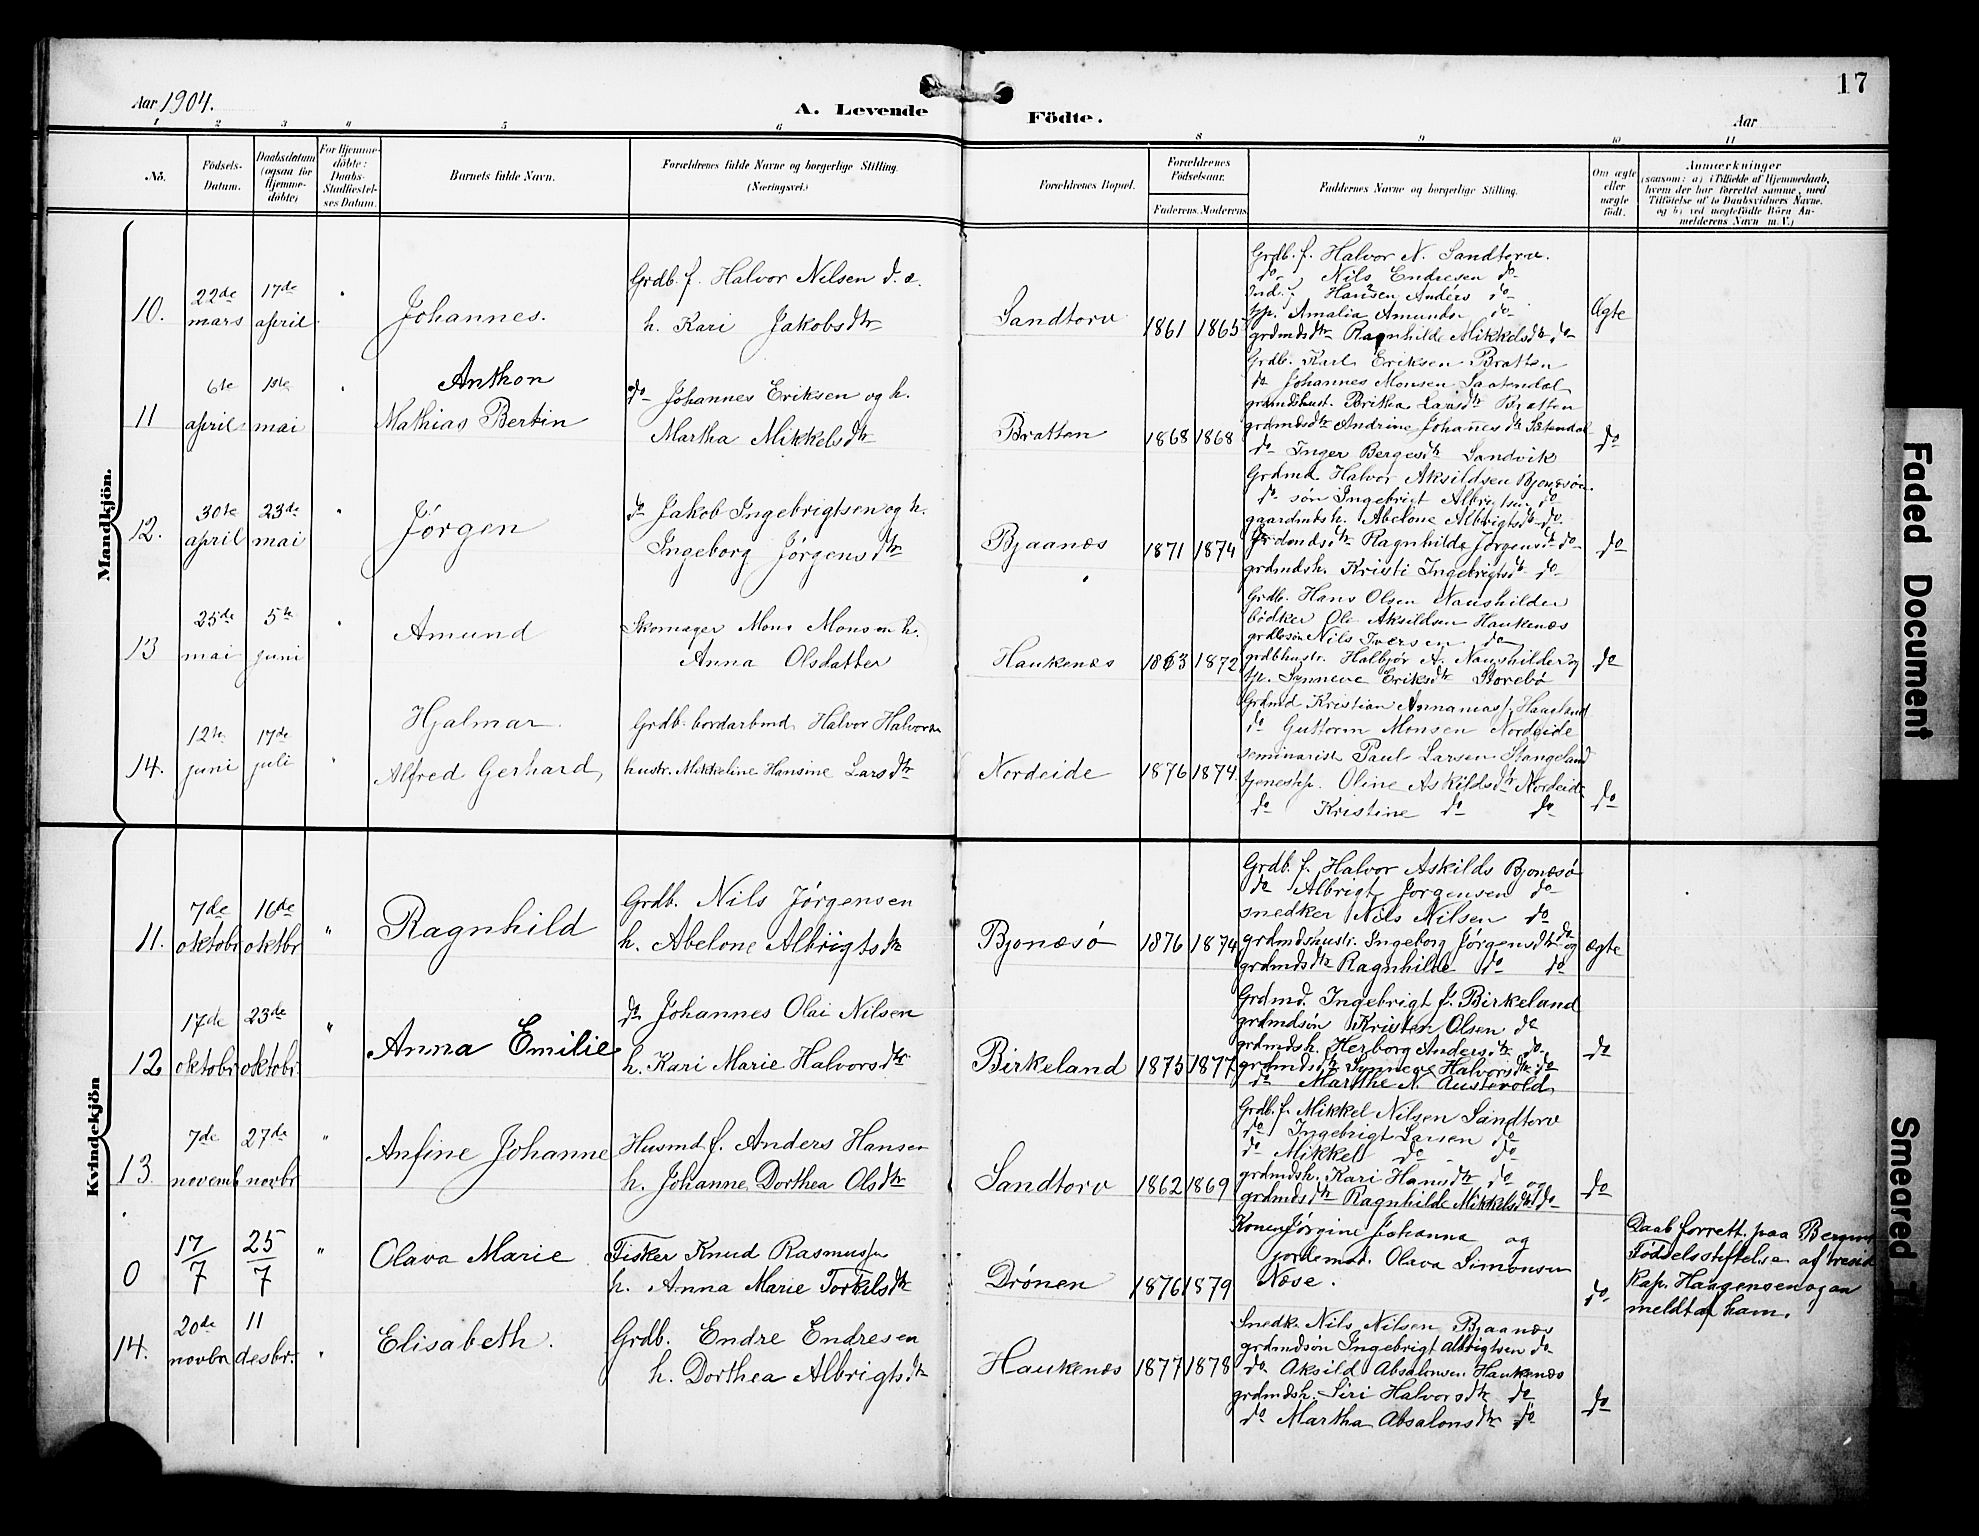 17
Aar 1904.
A. Levende
Födte.
Aar
1 2 3 4 5 6 8 9 10 11
No.
Födsels-Datum.
Daabsdatum (ogsaa for Hjemme-döbte)
For Hjemme-döbte: Daabs-Stadfæstel-ses Datum.
Barnets fulde Navn.
Forældrenes fulde Navne og borgerlige Stilling. (Næringsvei.)
Forældrenes Bopæl.
Forældrenes Födselsaar.
Faderens. Moderens
Faddernes Navne og borgerlige Stilling.
Om ægte eller uægte födt.
Anmærkninger
(saasom: a) i Tilfælde af Hjemmedaab,
hvem der har forrettet samme, med
Tilföielse af to Daabsvidners Navne.
og b) ved uægtefödte Börn An-
melderens Navn m.V.)
Mandkjön.
10.
22de mars
17de april
Johannes.
Grdb. f. Halvor Nilsen d. e.
h. Kari Jakobsdtr
Sandtorv
1861 1865
Grdb. f. Halvor N. Sandtorv.
do Nils Endresen do
Hansen Anders do
tjp. Amalia Amunds do
grdmdsdtr Ragnhilde Mikkelsdtr do
Ægte
11
6te april
1ste mai
Anthon
Mathias Bertin
do Johannes Eriksen og h.
Martha Mikkelsdtr
Bratten
1868 1868
Grdb. Karl Eriksen Bratten
do Johannes Monsen Saatendal
grdmdshust. Britha Larsdtr Bratten
grdmdsdtr Andrine Johannesdtr
do Inger Bergesdtr Sandvik
do
12.
30te april
23de mai
Jørgen
do Jakob Ingebrigtsen og h.
Ingeborg Jørgensdtr
Bjaanæs
1871 1874
Grdmd. Halvor Aksildsen Bjonæsøn.
do søn Ingebrigt Albrigtsen do
gaardmdsh. Abelone Albrigtsdtr do.
Grdmdsdtr Ragnhilde Jørgensdtr do
grdmdsh. Kristi Ingebrigtsdtr do
do
13
25de mai
5te juni
Amund
Skomager Mons Monsen h.
Anna Olsdatter
Haukenæs
1863 1872
Grdb. Hans Olsen Naushilder
bødker Ole Aksildsen Haukenæs
grdbsøn Nils Iversen do
grdbhustr. Halbjør A. Naushilder og
tjp. Synneve Eriksdtr Storebø
do
14.
12te juni
17de juli
Hjalmar
Alfred Gerhard
Grdb. bordarbmd Halvor Halvorsn
hustr. Mikkeline Hansine Larsdtr
Nordeide
1876 1874.
Grdmd Kristian Annanias f. Haaeland
do Guttorm Monsen Nordeide
seminarist Paul Larsen Stangeland
tjenestp. Oline Askildsdtr Nordeide
do Kristine do do
do
Kvindekjön
11.
7de oktobr
16de oktbr
"
Ragnhild
Grdb. Nils Jørgensen
h. Abelone Albrigtsdtr
Bjonæsø
1876 1874
Grdb. f. Halvor Askilds Bjonæsø
do Albrigt Jorgensen do
snedker Nils Nilsen do
grdmdshustr. Ingeborg Jørgensdtr do og
grdmdsdtr Ragnhilde do do
ægte
12
17de oktobr
23de oktobr.
"
Anna Emilie
do Johannes Olai Nilsen
h. Kari Marie Halvorsdtr
Birkeland
1875 1877
Grdmd. Ingebrigt J. Birkeland
grdmdsøn Kristen Olsen do
grdmdsh. Herborg Andersdtr do
grdmdsdtr Synneve Halvorsdtr do
do Marthe N. Austevold
do
13.
7de novemb
27de novbr
"
Anfine Johanne
Husmd f. Anders Hansen
h. Johanne Dorthea Olsdtr
Sandtorv
1862 1869
Grdb. f. Mikkel Nilsen Sandtorv
do Ingebrigt Larsen do
do Mikkel do do
grdmdsh. Kari Hansdtr do og
grdmdsdtr Ragnhilde Mikkelsdtr do
do
0
17/7
25/7
"
Olava Marie
Fisker Knud Rasmussen
h. Anna Marie Torkelsdtr
Drónen
1876 1879
Konen Jørgine Johanna og
jordemod. Olava Simonsen
Næse.
do.
Daab forrett. paa Bergens
Fødselsstiftelse af resid
kap. Haagensen og an
meldt af ham.
14.
20de novbr
11 desbr.
"
Elisabeth.
Grdb. Endre Endresen
h. Dorthea Albrigtsdtr
Haukenæs
1877 1878
Snedk. Nils Nilsen Bjaanæs
grdmdsøn Ingebrigt Albrigtsen do
do. Aksild Absalonsen Haukenæs
grdmdsh. Siri Halvorsdtr do
do Martha Absalonsdtr do
do
Faded Document
Smeared